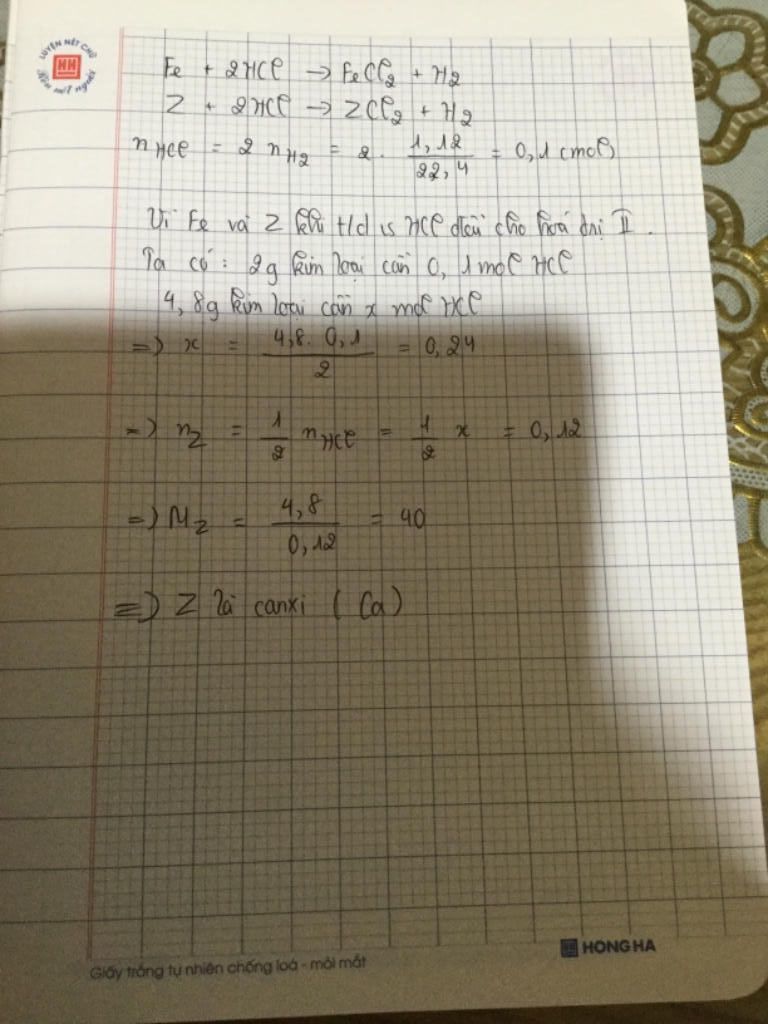 LUYỆN NÉT CHỮ
HH
Rèn nết người
Fe + 2HCl → FeCl₂ + H₂
Z + 2HCl → ZCl₂ + H₂
nHCl = 2 nH₂ = 2. 1,12/22,4 = 0,1 (mol)
Vì Fe và Z khi t/d vs HCl đều cho hoá trị II.
Ta có: 2g kim loại cần 0,1 mol HCl
4,8g kim loại cần x mol HCl
=> x = 4,8. 0,1/2 = 0,24
=> nZ = 1/2 nHCl = 1/2 x = 0,12
=> MZ = 4,8/0,12 = 40
=> Z là canxi (Ca)
HONG HA
Giấy trắng tự nhiên chống loá - mỏi mắt